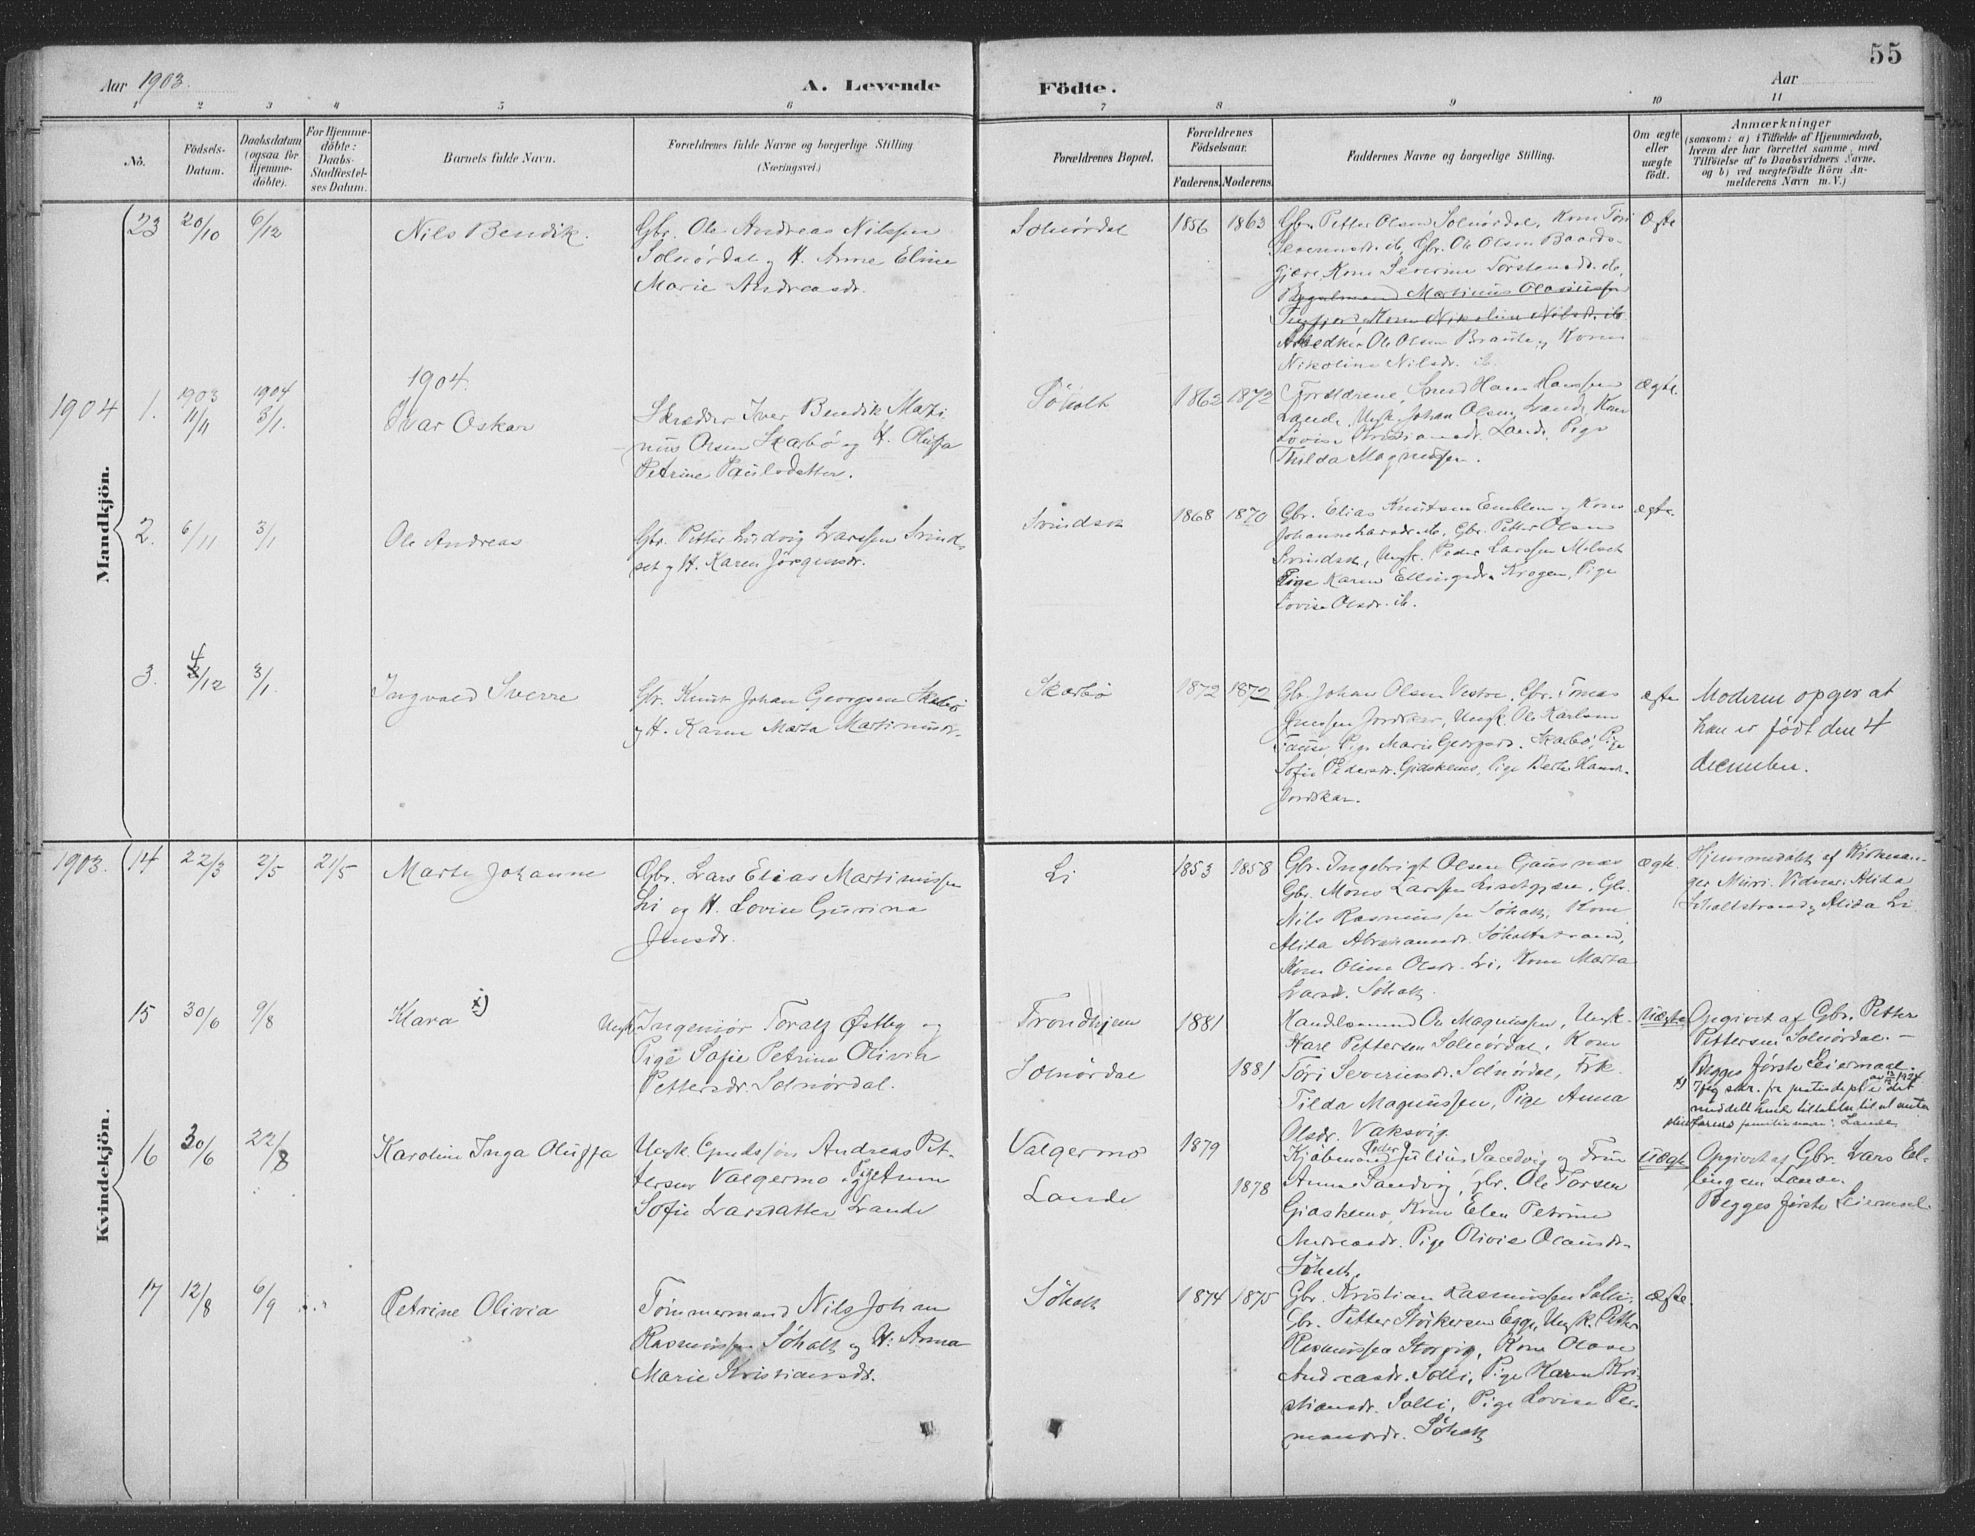 55
Aar 1903.
A. Levende
Födte.
Aar
1 2 3 4 5 6 7 8 9 10 11
No.
Födsels-
Datum.
Daabsdatum
(ogsaa for
Hjemme-
döbte).
For Hjemme-
döbte:
Daabs-
Stadfæstel-
ses Datum.
Barnets fulde Navn.
Forældrenes fulde Navne og borgerlige Stilling
(Næringsvei.)
Forældrenes Bopæl.
Forældrenes
Födselsaar.
Faderens. Moderens.
Faddernes Navne og borgerlige Stilling.
Om ægte
eller
uægte
födt.
Anmærkninger
(saasom: a) i Tilfælde af Hjemmedaab,
hvem der har forrettet samme, med
Tilföielse af to Daabsvidners Navne.
og b) ved uægtefödte Börn An-
melderens Navn m. V.)
Mandkjön.
23 20/10 6/12
Nils Bendik.
Gbr. Ole Andreas Nilssen
Solnørdal og H. Anne Eline
Marie Andreasdr.
Solnørdal
1856 1863
Gbr. Petter Olsen Solnørdal, Kone Töri
Severinsdr. ib., Gbr. Ole Olsen Baards-
gjære, Kone Severine Torstensdr. ib.,
Martinus Olaussen
Kone Nikoline Nilsdr. ib.
Ole Olsen Braute, Kone
Nikoline Nilsdr. ib.
Ægte
1904.
1904 1. 1903 11/11 1904 3/1.
Ivar Oskar
Skrædder Iver Bendik Marti
nus Olsen Skarbø og H. Oluffa
Petrine Paulsdatter.
Søholt
1862 1872
Forældrene, Hans Hanssen
Lande, Ungk. Johan Olsen Lande, Kone
Lovise Kristiansdr. Lande, Pige
Thilda Magnussen.
Ægte
2. 6/11 3/1
Ole Andreas
Gbr. Petter Ludvig Larssen Svind-
set og H. Karen Jørgensdr.
Svindset
1868 1870
Gbr. Elias Knutsen Emblem og Kone
Johanne Larsdr. ib., Gbr. Petter Olsen
Svindset, Ungk. Peder Larssen Melset
Pige Karen Ellingsdr. Krogen, Pige
Lovise Olsdr. ib.
ægte.
3. 4/12 3/1.
Ingvald Sverre
Gbr. Knut Johan Georgsen Skarbø
og H. Karen Marta Martinusdr.
Skarbø
1872 1872
Gbr. Johan Olsen Vestre, Gbr. Tomas
Jenssen Jordskar, Ungk. Ole Karlsen
Pige Marie Georgsdr. Skarbø, Pige
Sofie Pedersdr. Gidskemo, Pige Berte Hansdr.
Jordskar.
ægte
Moderen opgir at
han er født den 4
december.
Kvindekjön.
1903. 14 22/3 2/5 21/5
Marte Johanne
Gbr. Lars Elias Martinussen
Li og H. Lovise Gurina
Jensdr.
Li
1853 1858
Gbr. Ingebrigt Olsen Gausnæs
Gbr. Mons Larssen Lisetgjære, Gbr.
Nils Rasmussen Søholt, Kone
Alida Abrahamsdr. Søholtstrand,
Kone Oline Olsdr. Li, Kone Marta
Larsdr. Søholt.
ægte.
Hjemmedøbt af
Vidner: Alida
Søholtstrand og Alida Li
15 30/6 9/8
Klara x)
Ungk. Ingeniør Toralf Østby og
Pige Sofie Petrine Olivia
Pettersdr. Solnørdal.
Trondhjem
Solnørdal
1881
1881
Handelsmand Ole Magnussen, Ungk.
Karl Pettersen Solnørdal, Kone
Töri Severinsdr. Solnørdal, Frk.
Tilda Magnussen, Pige Anna
Olsdr. Vaksvig
Uægte
Opgivet af Gbr. Petter
Pettersen Solnørdal. —
Begges første Leiermaal.
familienavn: Lande
16 30/6 22/8
Karoline Inga Oluffa
Ungk. Andreas Pet-
tersen Valgermo og Pige Anne
Sofie Larsdatter Lande
Valgermo
Lande
1879
1878
Kjøbmand Peder Julius Sandvig og Frue
Anna Sandvig, Gbr. Ole Larsen
Gidskemo, Kone Elen Petrine
Andreasdr. Pige Olivie Olausdr.
Søholt.
Uægte
Opgivet af Gbr. Lars El-
lingsen Lande.
Begges første Leiermaal.
17 12/8 6/9
Petrine Olivia
Tømmermand Nils Johan
Rasmussen Søholt og H. Anna
Marie Kristiansdr.
Søholt
1874 1875
Gbr. Kristian Rasmussen Solli,
Gbr. Petter Egge, Ungk. Petter
Rasmussen Kone Olave
Andreasdr. Solli, Pige Karen Kri-
stiansdr. Solli, Pige Lovise Pe-
Søholt
Ægte.